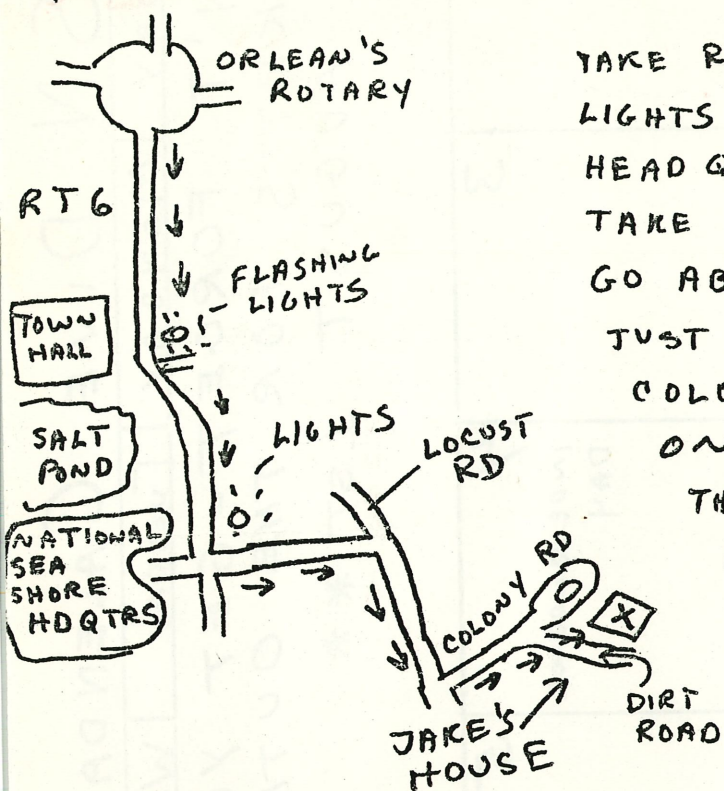 ORLEAN'S
ROTARY
RT6
FLASHING
LIGHTS
TOWN
HALL
SALT
POND
LIGHTS
LOCUST
RD
NATIONAL
SEA
SHORE
HDQTRS
COLONY RD
X
JAKE'S
HOUSE
DIRT
ROAD
TAKE R
LIGHTS
HEAD Q
TAKE
GO AB
JUST
COLO
ON
TH